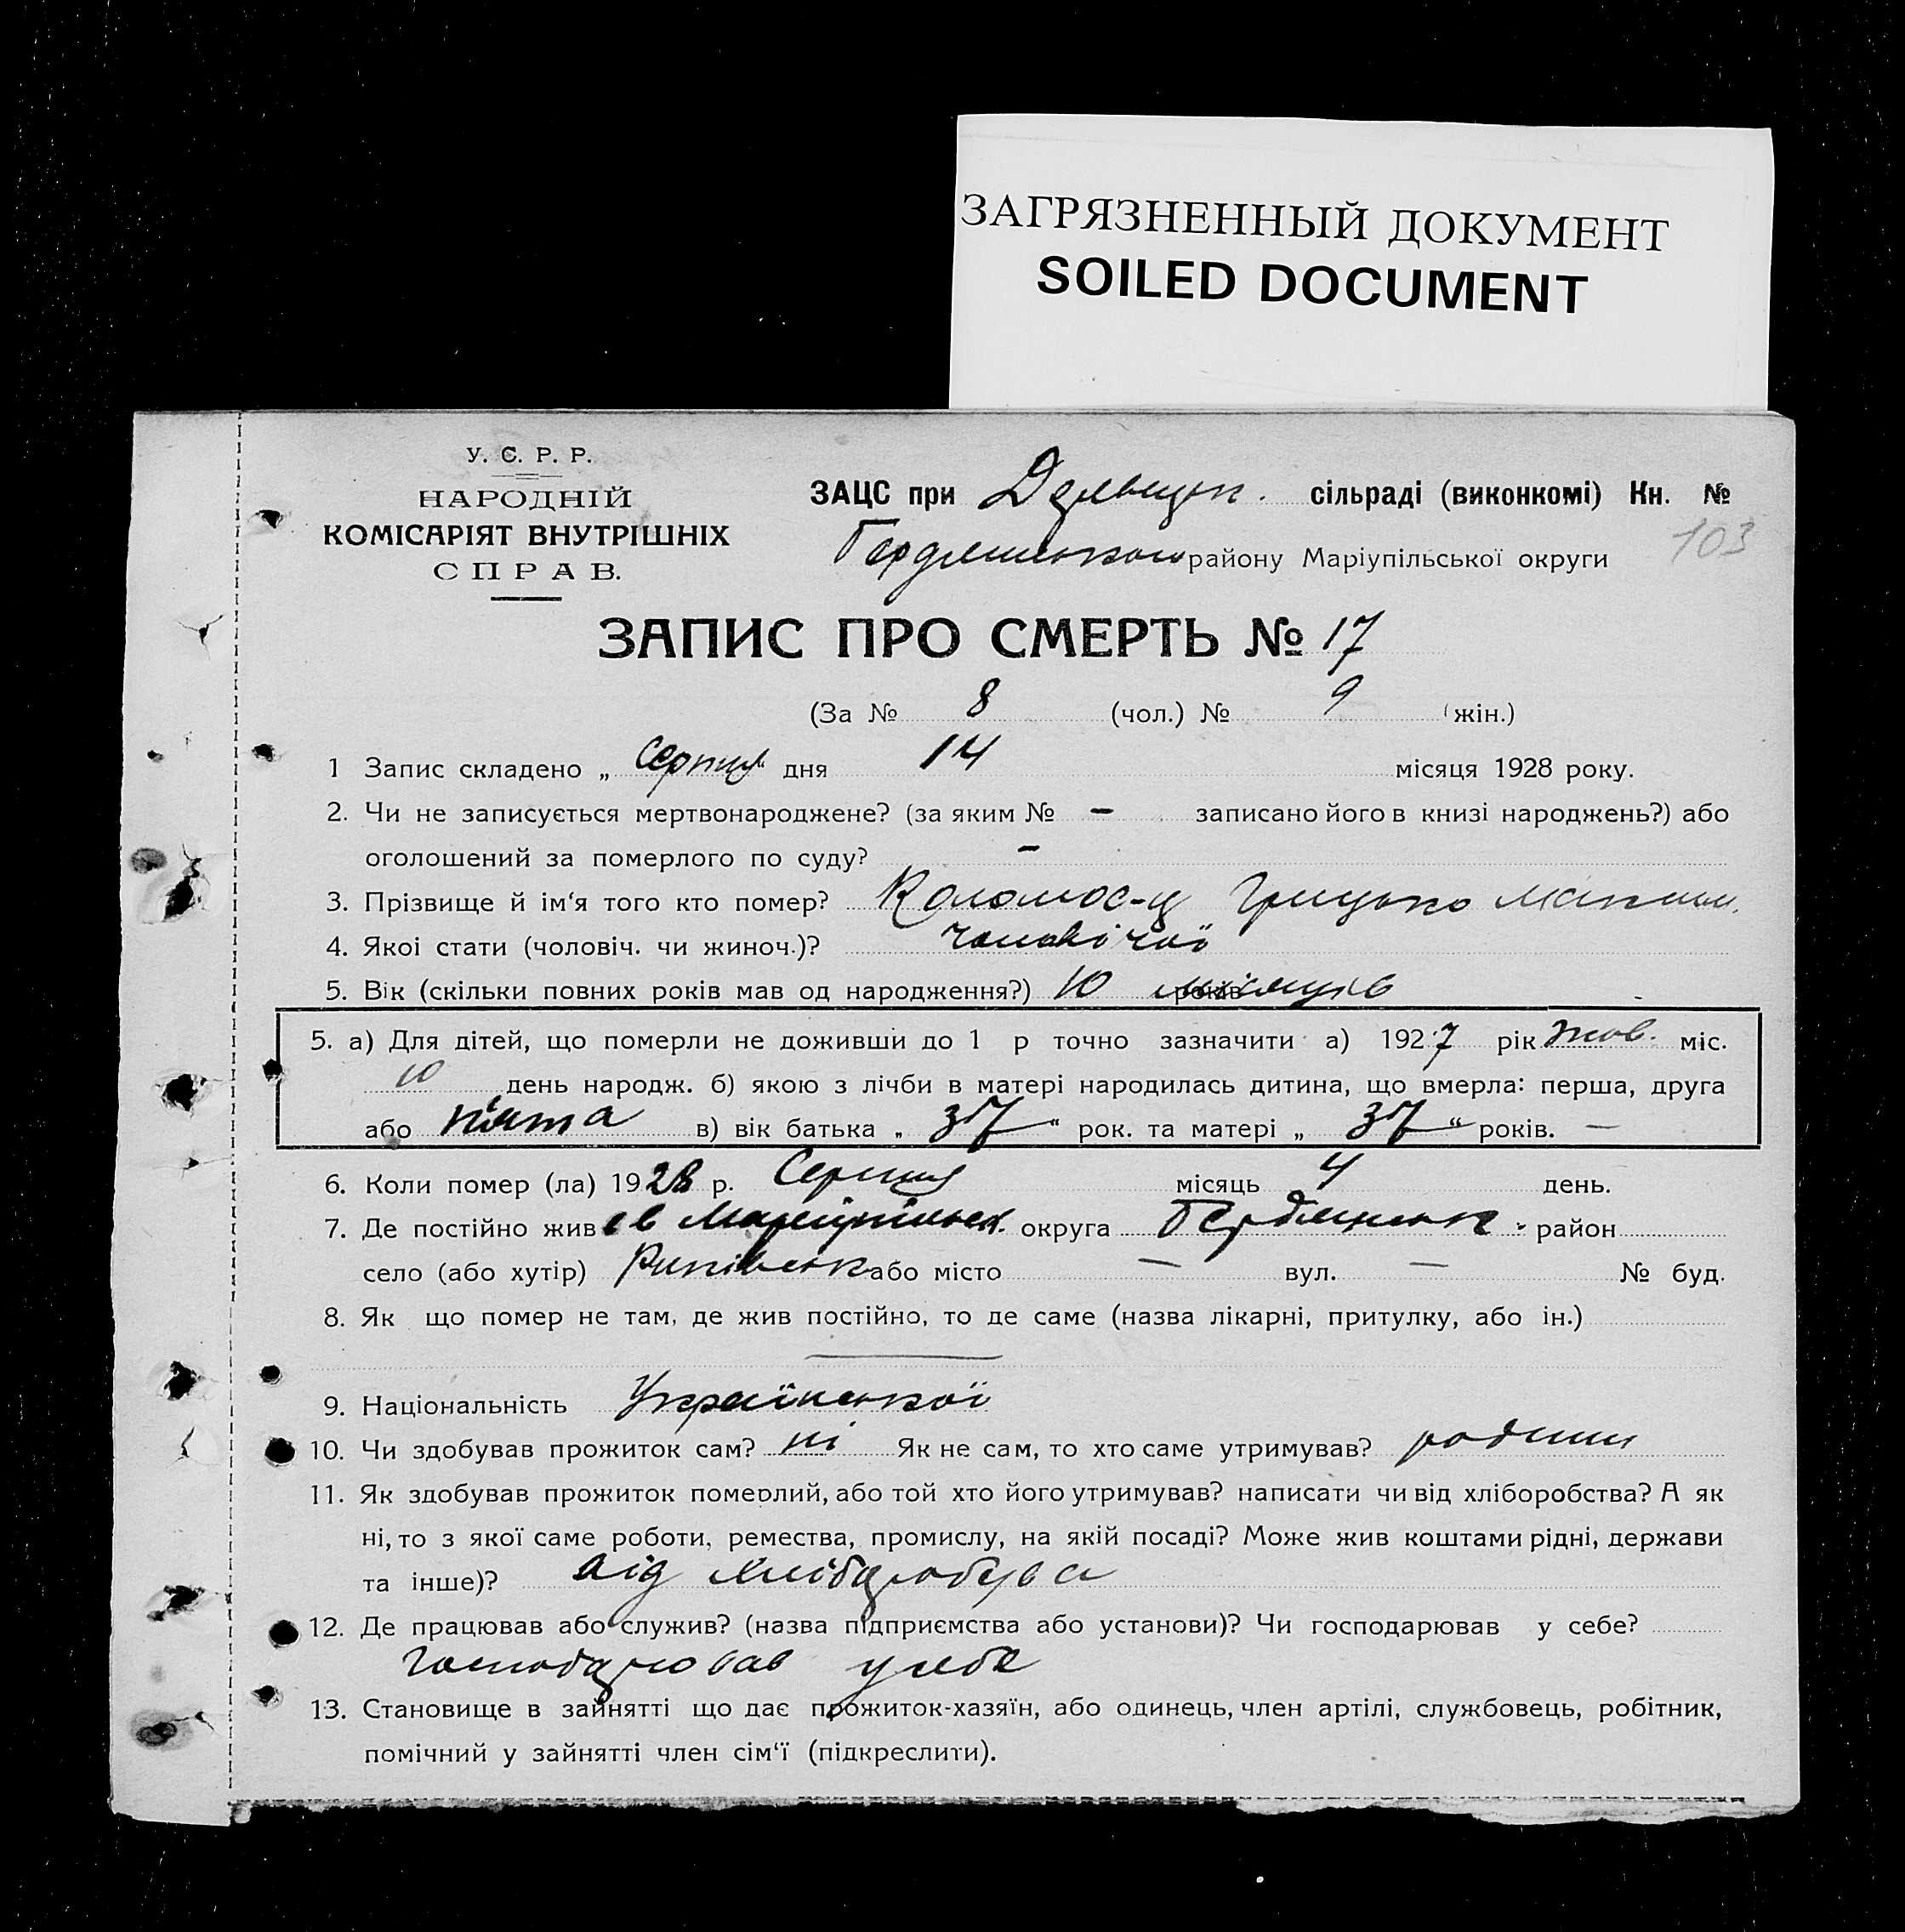 ЗАГРЯЗНЕННЫЙ ДОКУМЕНТ
SOILED DOCUMENT
У. С. Р. Р.
НАРОДНІЙ
КОМІСАРІЯТ ВНУТРІШНІХ
СПРАВ.
ЗАЦС при сільраді (виконкомі) Кн. №
Бердянського району Маріупільської округи 103
ЗАПИС ПРО СМЕРТЬ № 17
(За № 8 (чол.) № 9 (жін.)
1 Запис складено „ Серпня " дня 14 місяця 1928 року.
2. Чи не записується мертвонароджене? (за яким № – записано його в книзі народжень?) або
оголошений за померлого по суду? –
3. Прізвище й ім‘я того кто помер? Коломоє-ц Грицько
4. Якоі стати (чоловіч. чи жиноч.)? чоловічої
5. Вік (скільки повних років мав од народження?) 10 місяців
5. а) Для дітей, що померли не доживши до 1 р точно зазначити а) 1927 рік жов. міс.
10 день народж. б) якою з лічби в матері народилась дитина, що вмерла: перша, друга
або п'ята в) вік батька „ 37 “ рок. та матері „ 37 “ років. —
6. Коли помер (ла) 1928 р. Серпня місяць 4 день.
7. Де постійно жив в Маріупільськ. округа Бердянськ. район
село (або хутір) або місто — вул. — № буд.
8. Як що помер не там, де жив постійно, то де саме (назва лікарні, притулку, або ін.)
—
9. Національність Української
10. Чи здобував прожиток сам? ні Як не сам, то хто саме утримував? родини
11. Як здобував прожиток померлий, або той хто його утримував? написати чи від хліборобства? А як
ні, то з якої саме роботи, ремества, промислу, на якій посаді? Може жив коштами рідні, держави
та інше)? від
12. Де працював або служив? (назва підприємства або установи)? Чи господарював у себе?
господарював у себе
13. Становище в зайнятті що дає прожиток-хазяїн, або одинець, член артілі, службовець, робітник,
помічний у зайнятті член сім‘ї (підкреслити).